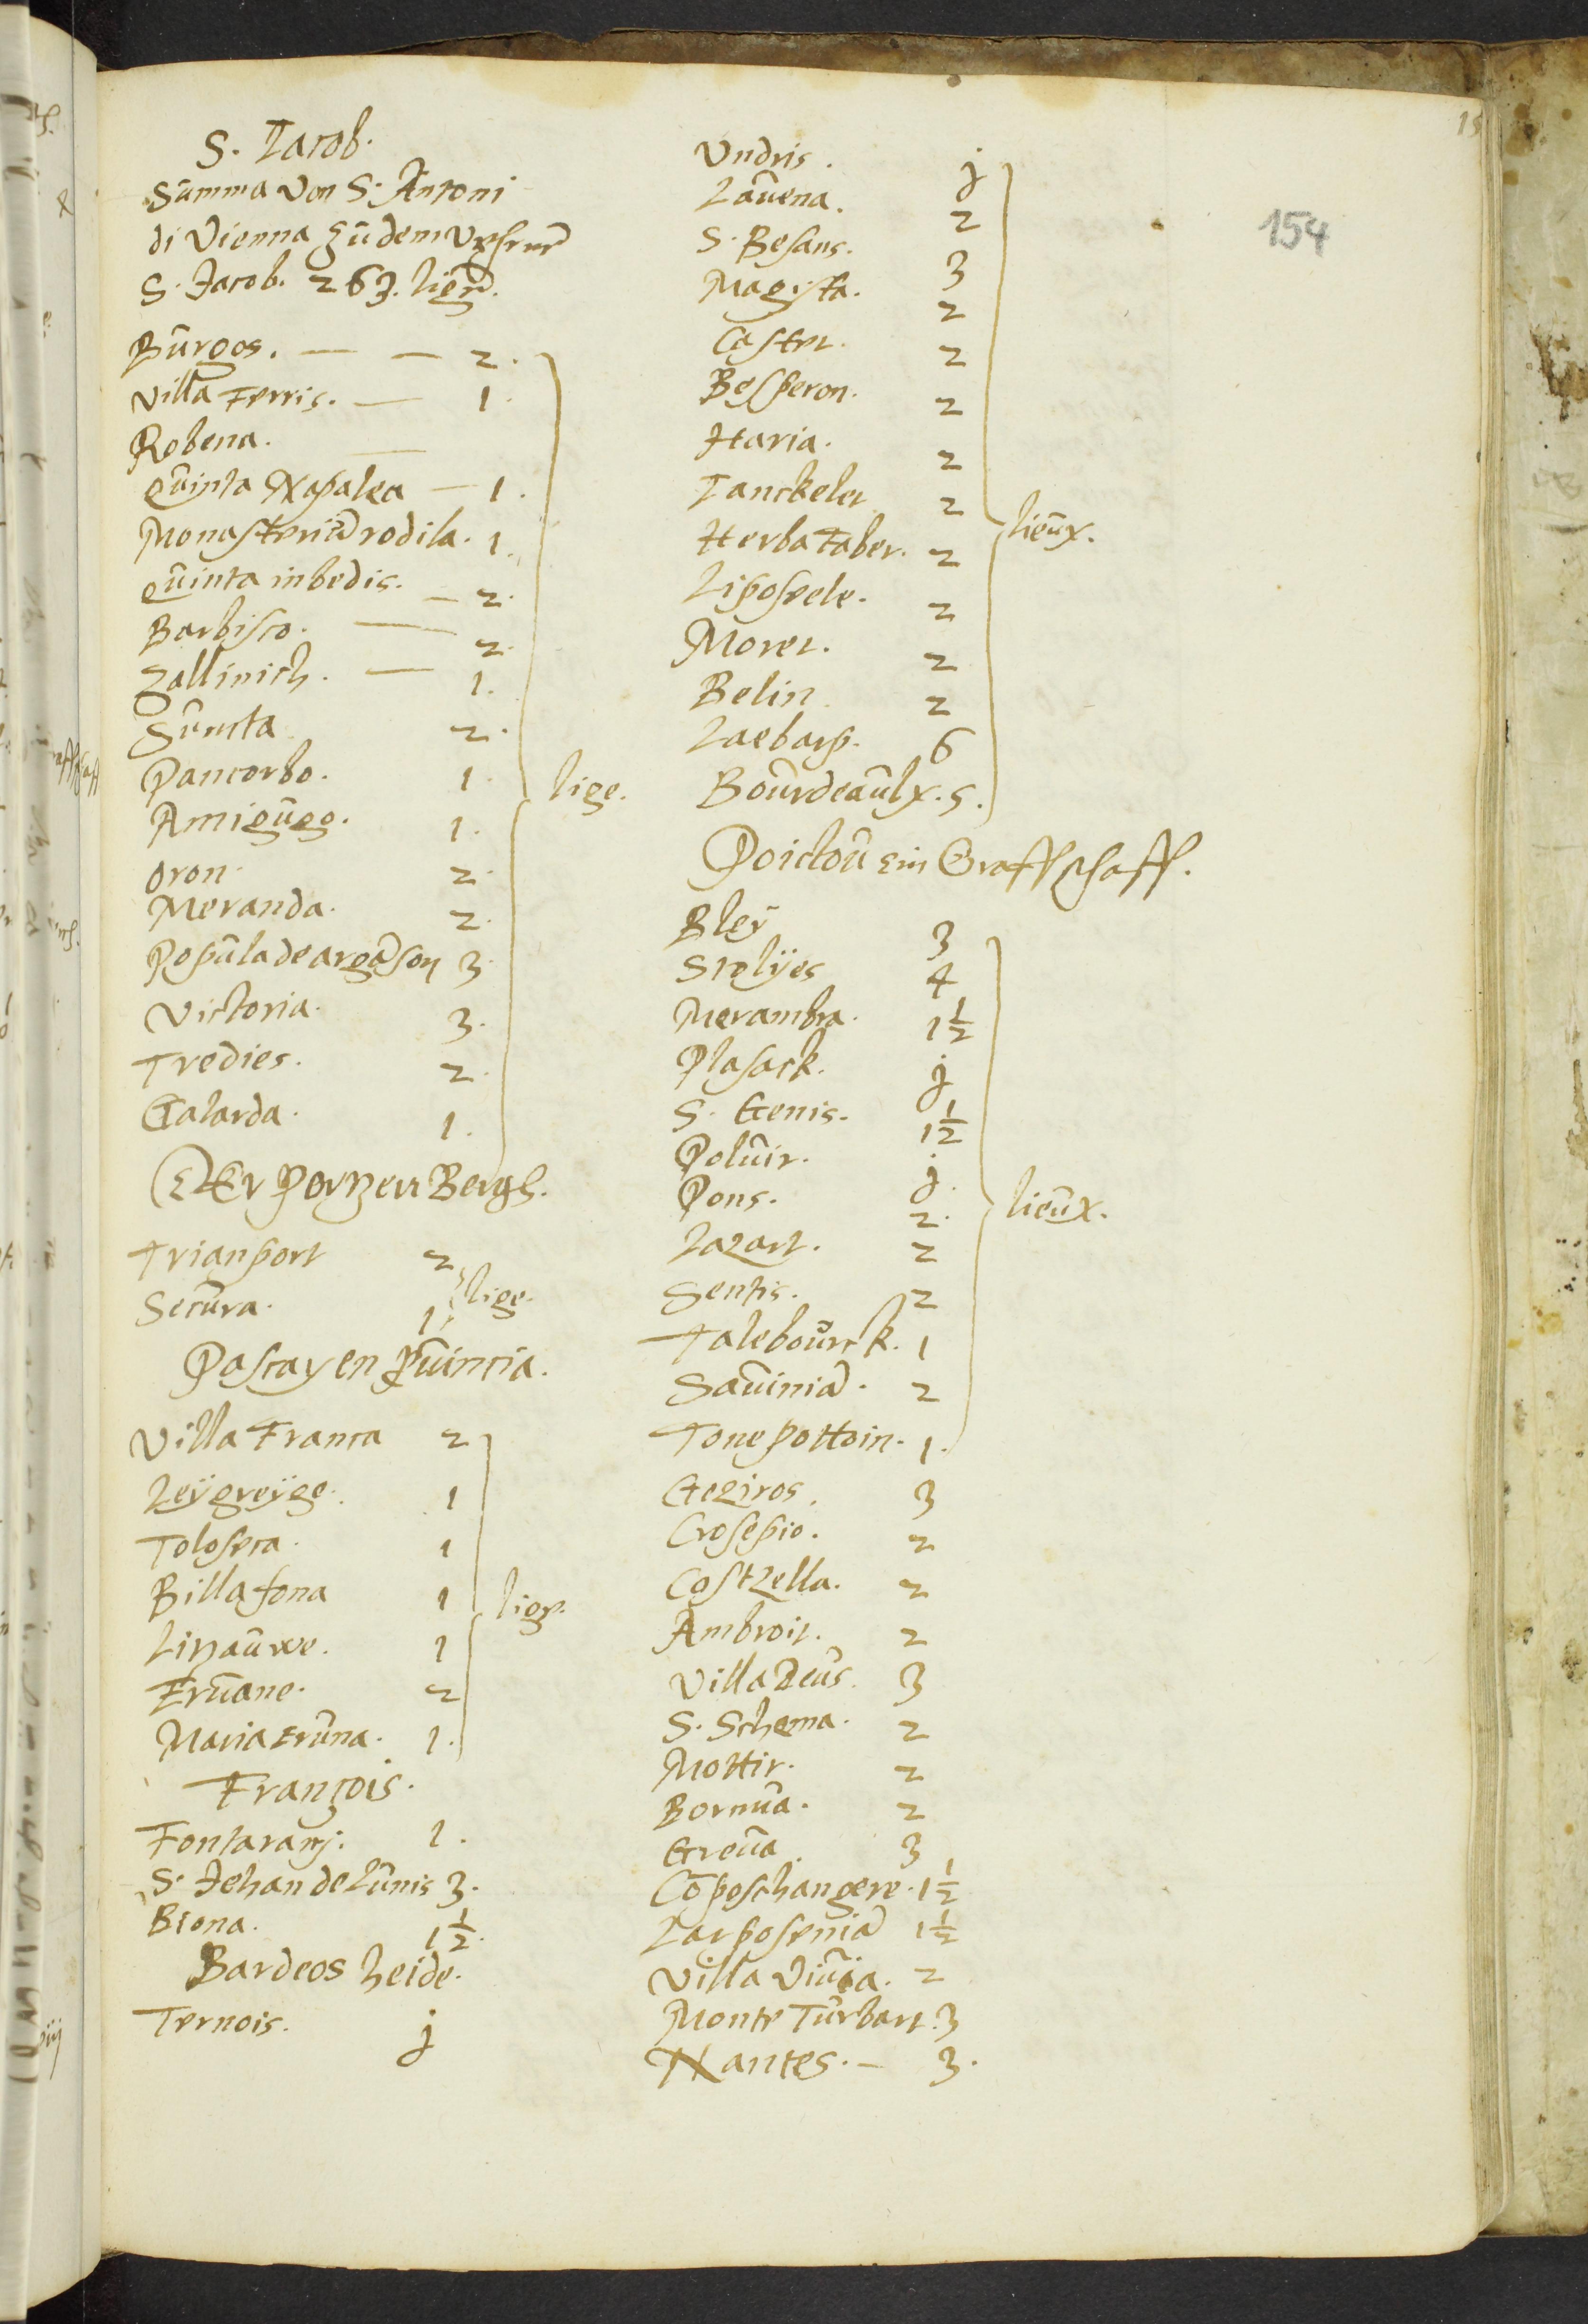 S. Jacob.
Summa von S. Antoni
di Vienna zu dem
S. Jacob. 263. liger.
Burgos. — — 2.
Villa Ferris. — 1.
Robena. —
quinta Napalea — 1.
Monasteriū rodila. 1.
quinta inbedis. — 2.
Barbisco. — 2.
zallinich. — 1.
Suncta 2.
Pancorbo. 1.
Amigueg. 1.
lige.
oron. 2.
Meranda. 2.
Populade argāson 3.
Victoria. 3.
Tredies. 2.
Galarda. 1.
Der Portzen Bergh.
Trianport 2
Secura. 1
lige.
Pascayen
Villa Franca 2
Leÿgreÿge. 1
Tolosera. 1
Billafona 1
liger.
Litzauwe. 1
Eruane. 2
Maria Eruna. 1.
François.
Fontarany. 1.
S. Jehan de Lunis 3.
Biona. 1½.
Bardeos heide.
Ternois. j
Undris. j
Lauena. 2
S. Besans. 3
Magista. 2
Castet. 2
Besperon. 2
Haria. 2
Tanckelet 2
lieux.
Herba Faber. 2
Liposvele. 2
Moret. 2
Belin 2
Laebarp. 6
Bourdeaulx. 5.
Poictou ein Graffschafft.
Bleÿ 3
Stolÿes 4
Merambra. 1½
Plasack. j
S. Genis. 1½
Poluir. j.
Pons. 2.
lieux.
Lazart. 2
Sentis. 2
Talebourck. 1
Sauiniā. 2
Tonepottoin. 1.
Geziros. 3
Crosepio. 2
Costzella. 2
Ambroit. 2
Villa Deus. 3
S. Schema. 2
Mottir. 2
Bornua. 2
Greua. 3
Cōposchangere. 1½
Larposeniā 1½
Villa Viuia. 2
Monte Turbart. 3
Nantes. — 3.
154